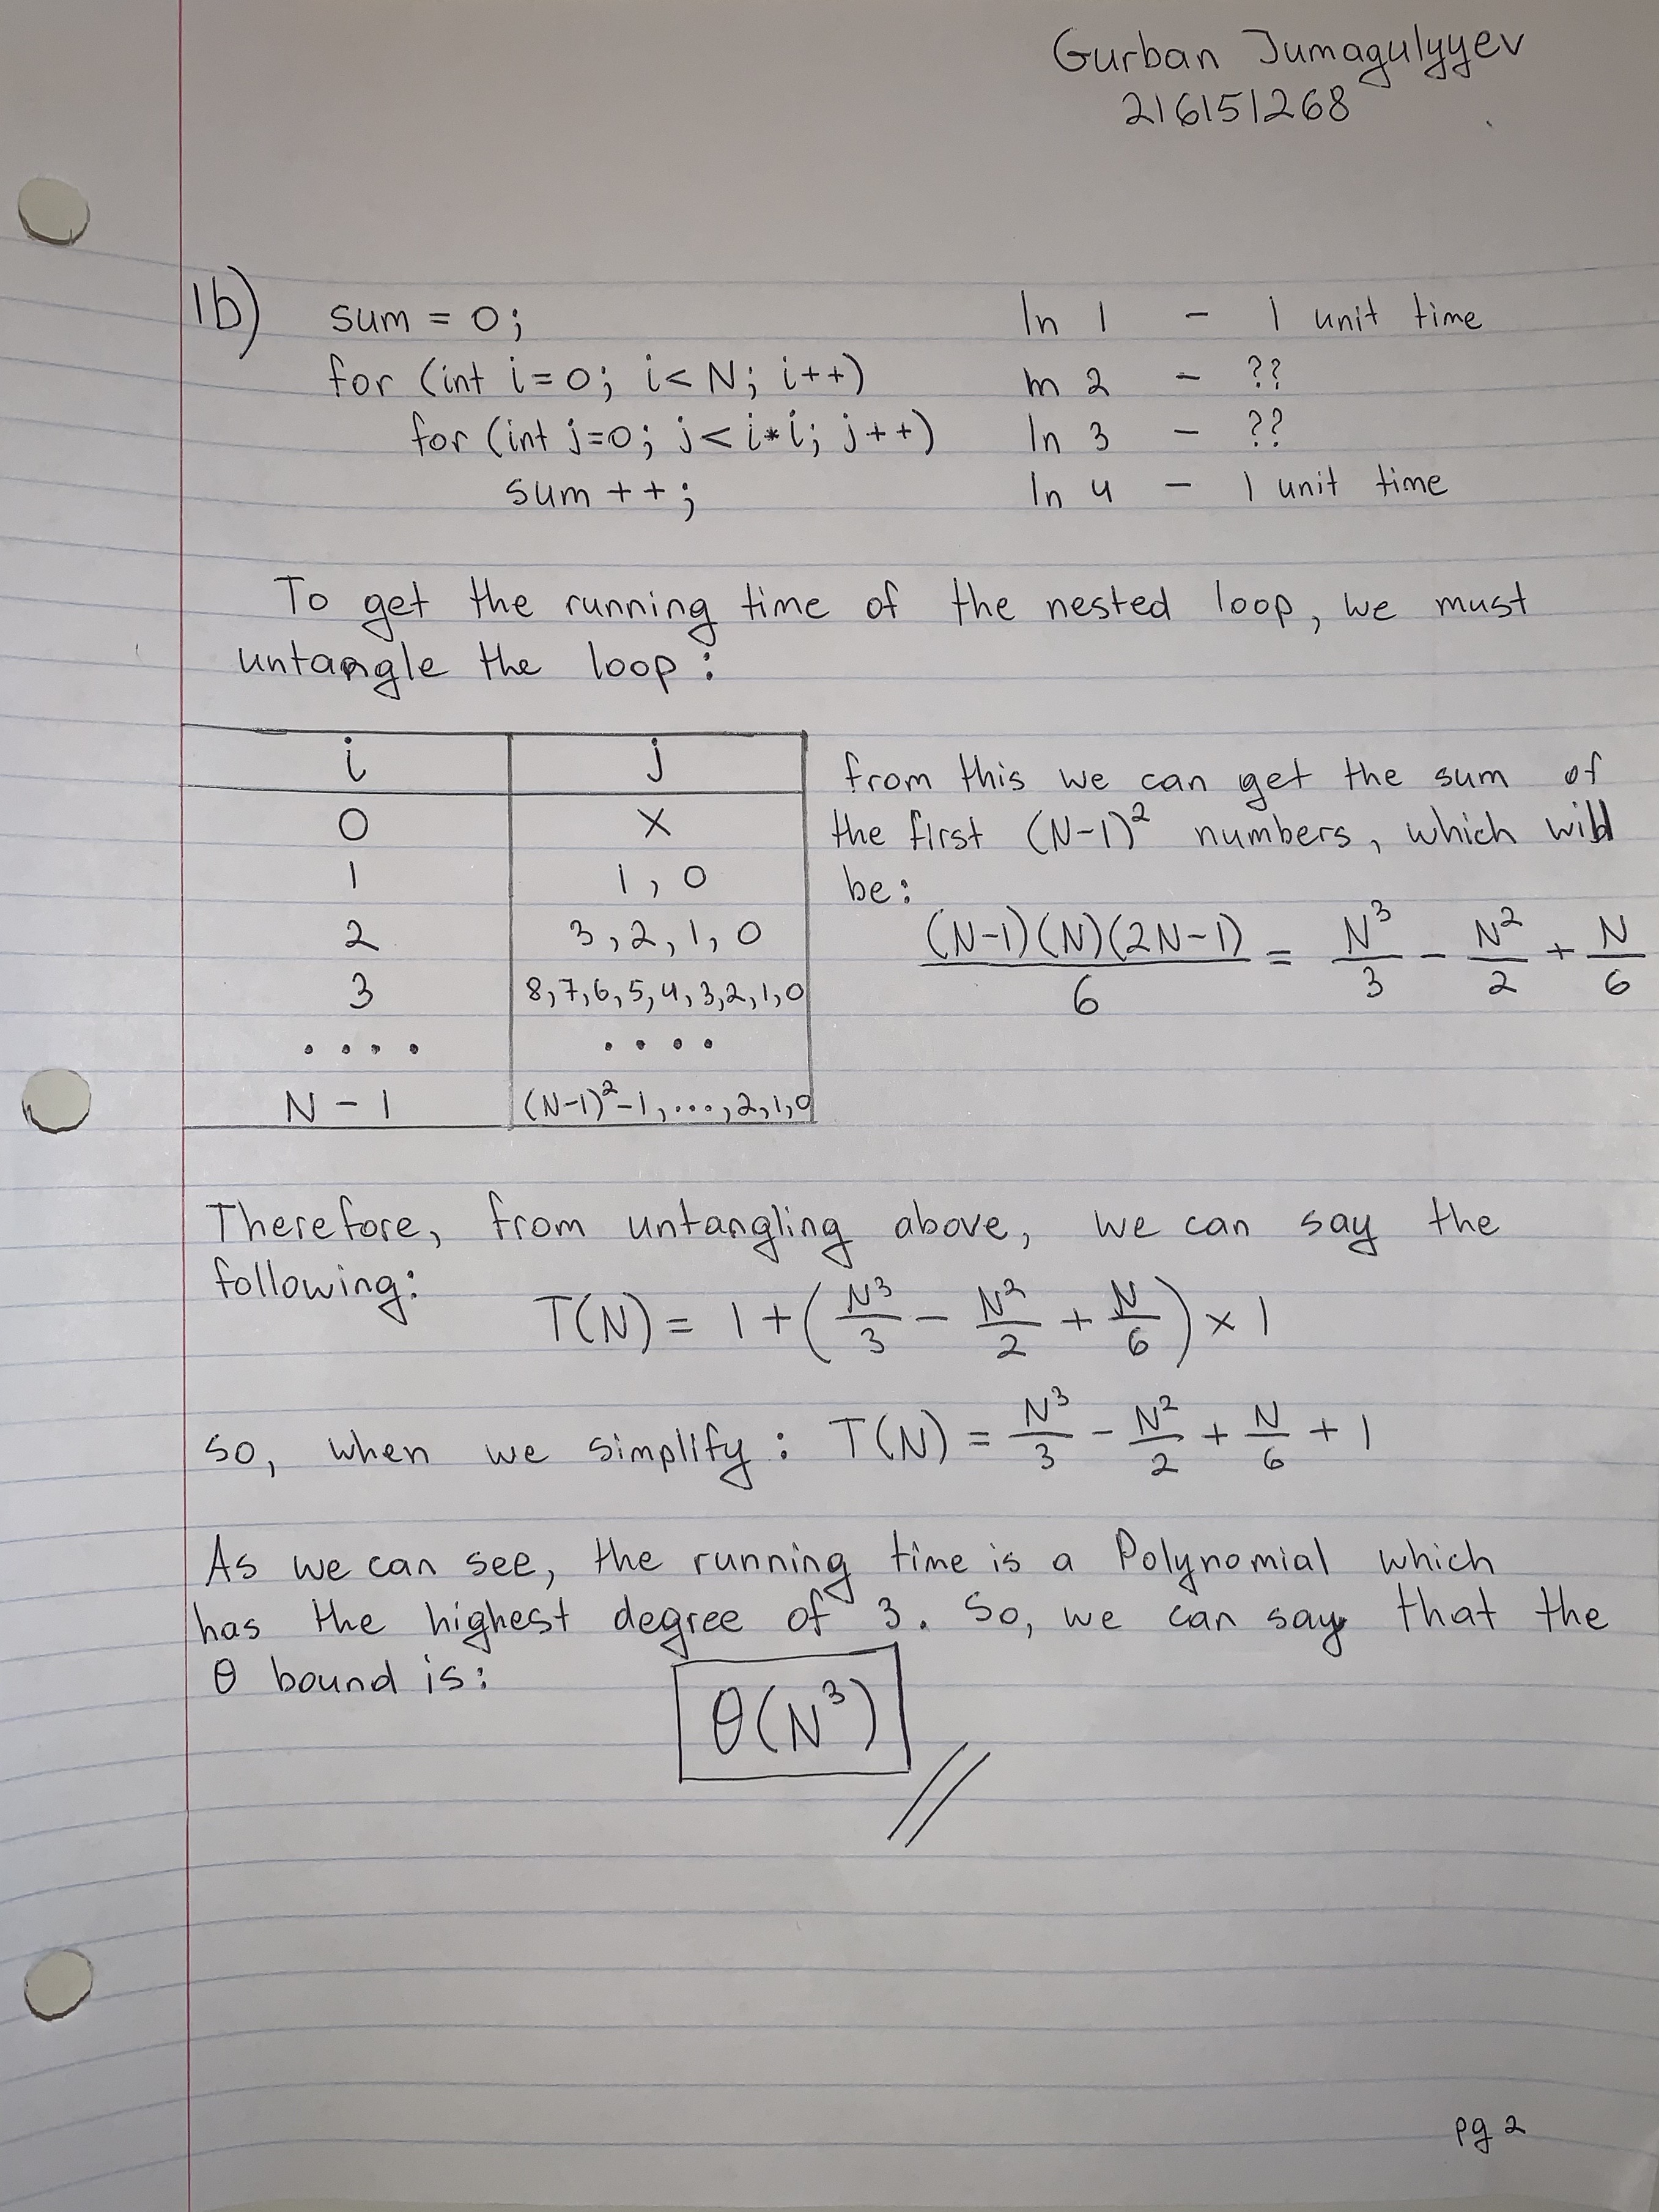 Gurban Jumagulyyev
216151268
1b) sum = 0; ln 1 - 1 unit time
for (int i=0; i<N; i++) ln 2 - ??
for (int j=0; j<i*i; j++) ln 3 - ??
sum++; ln 4 - 1 unit time
To get the running time of the nested loop, we must
untangle the loop:
i j
0 X
1 1, 0
2 3, 2, 1, 0
3 8, 7, 6, 5, 4, 3, 2, 1, 0
.... ....
N-1 (N-1)²-1, ..., 2, 1, 0
from this we can get the sum of
the first (N-1)² numbers, which will
be:
(N-1)(N)(2N-1)/6 = N³/3 - N²/2 + N/6
Therefore, from untangling above, we can say the
following:
T(N) = 1 + (N³/3 - N²/2 + N/6) × 1
So, when we simplify: T(N) = N³/3 - N²/2 + N/6 + 1
As we can see, the running time is a Polynomial which
has the highest degree of 3. So, we can say that the
θ bound is:
θ(N³)
pg 2